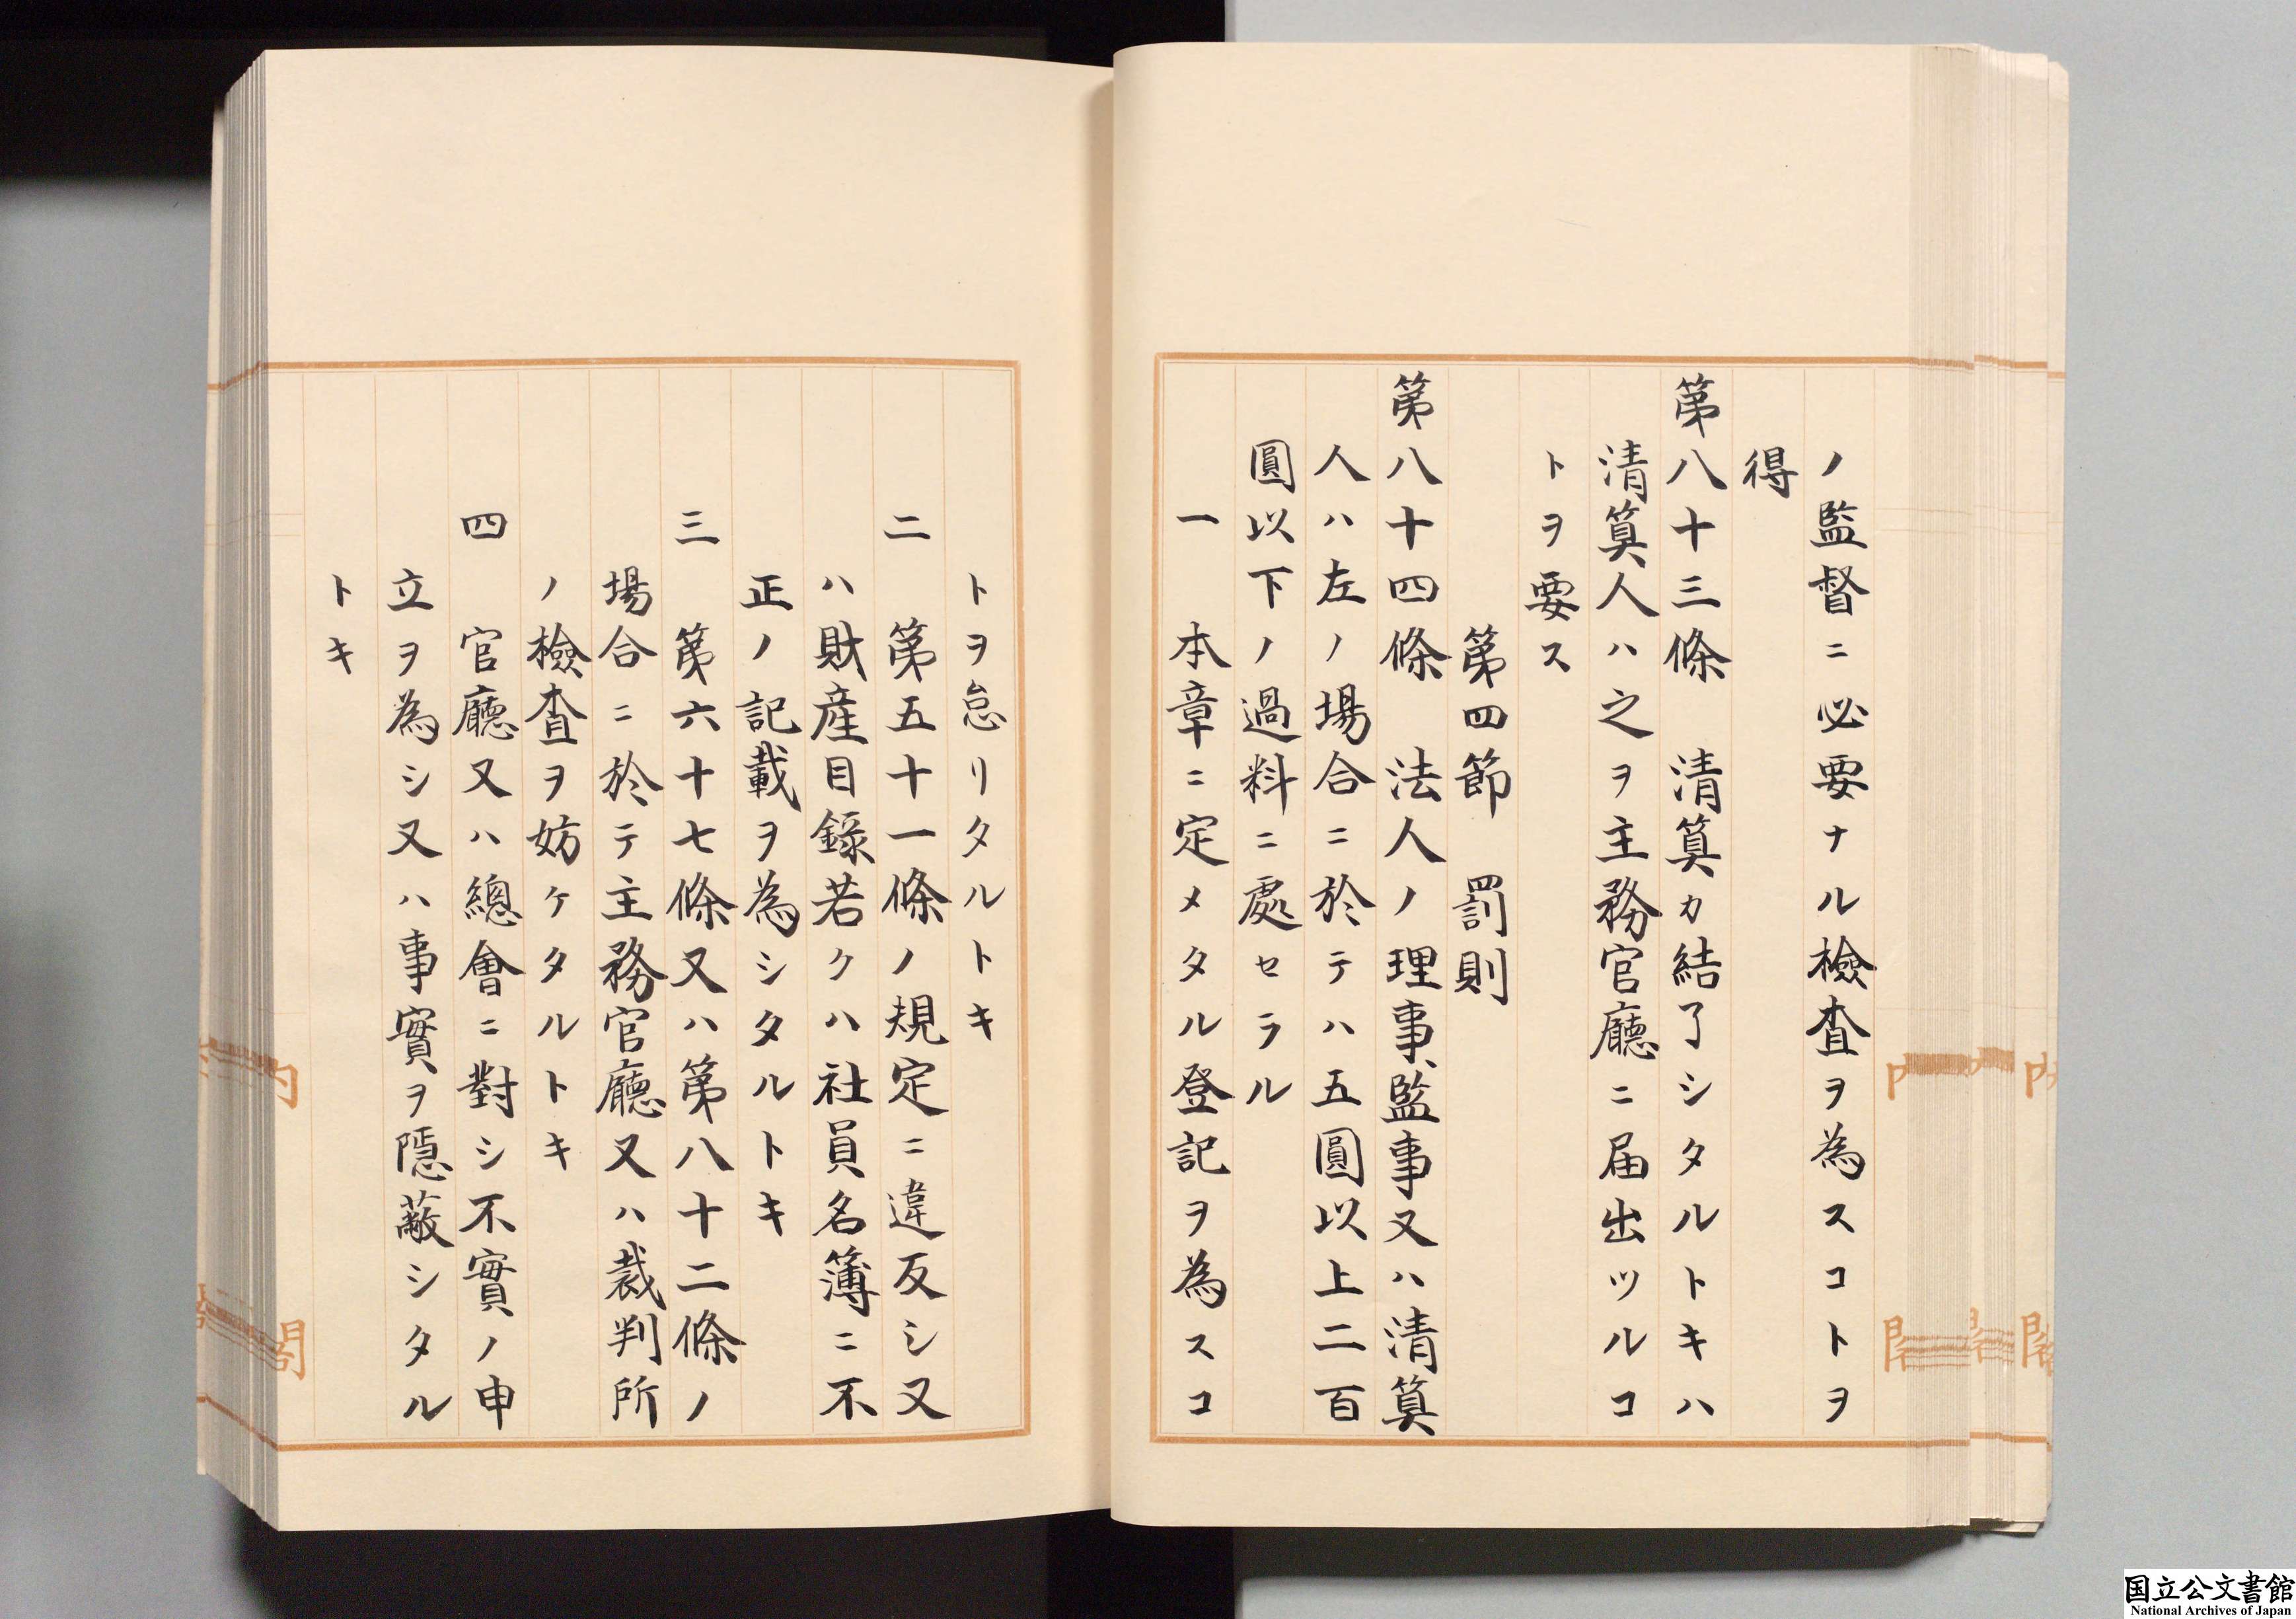 ノ監督ニ必要ナル檢査ヲ為スコトヲ
得
第八十三條　清算カ結了シタルトキハ
清算人ハ之ヲ主務官廳ニ届出ツルコ
トヲ要ス
第四節　罰則
第八十四條　法人ノ理事、監事又ハ清算
人ハ左ノ場合ニ於テハ五圓以上二百
圓以下ノ過料ニ處セラル
一　本章ニ定メタル登記ヲ為スコ
トヲ怠リタルトキ
二　第五十一條ノ規定ニ違反シ又
ハ財産目錄若クハ社員名簿ニ不
正ノ記載ヲ為シタルトキ
三　第六十七條又ハ第八十二條ノ
場合ニ於テ主務官廳又ハ裁判所
ノ檢査ヲ妨ケタルトキ
四　官廳又ハ總會ニ對シ不實ノ申
立ヲ為シ又ハ事實ヲ隱蔽シタル
トキ
内
閣
国立公文書館
National Archives of Japan